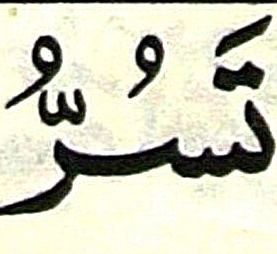 تَسُرُّ